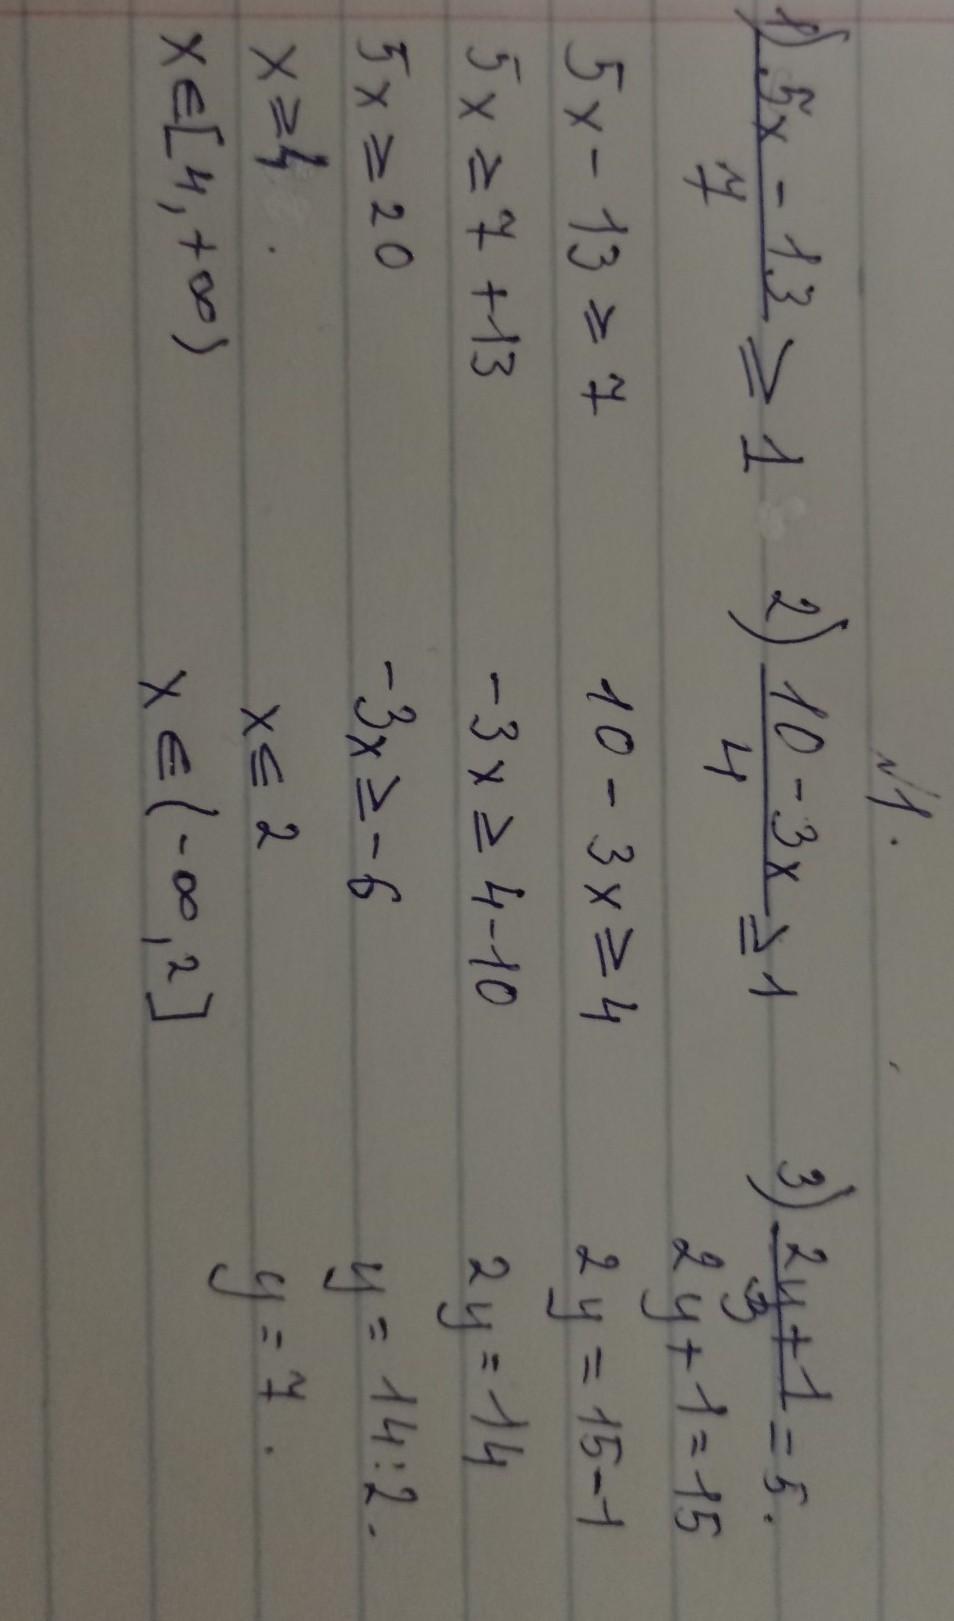 №1.
1) 5x - 13 / 7 ≥ 1
5x - 13 ≥ 7
5x ≥ 7 + 13
5x ≥ 20
x ≥ 4.
x ∈ [4, +∞)
2) 10 - 3x / 4 ≥ 1
10 - 3x ≥ 4
-3x ≥ 4 - 10
-3x ≥ -6
x ≤ 2
x ∈ (-∞, 2]
3) 2y + 1 / 3 = 5.
2y + 1 = 15
2y = 15 - 1
2y = 14
y = 14 : 2.
y = 7.